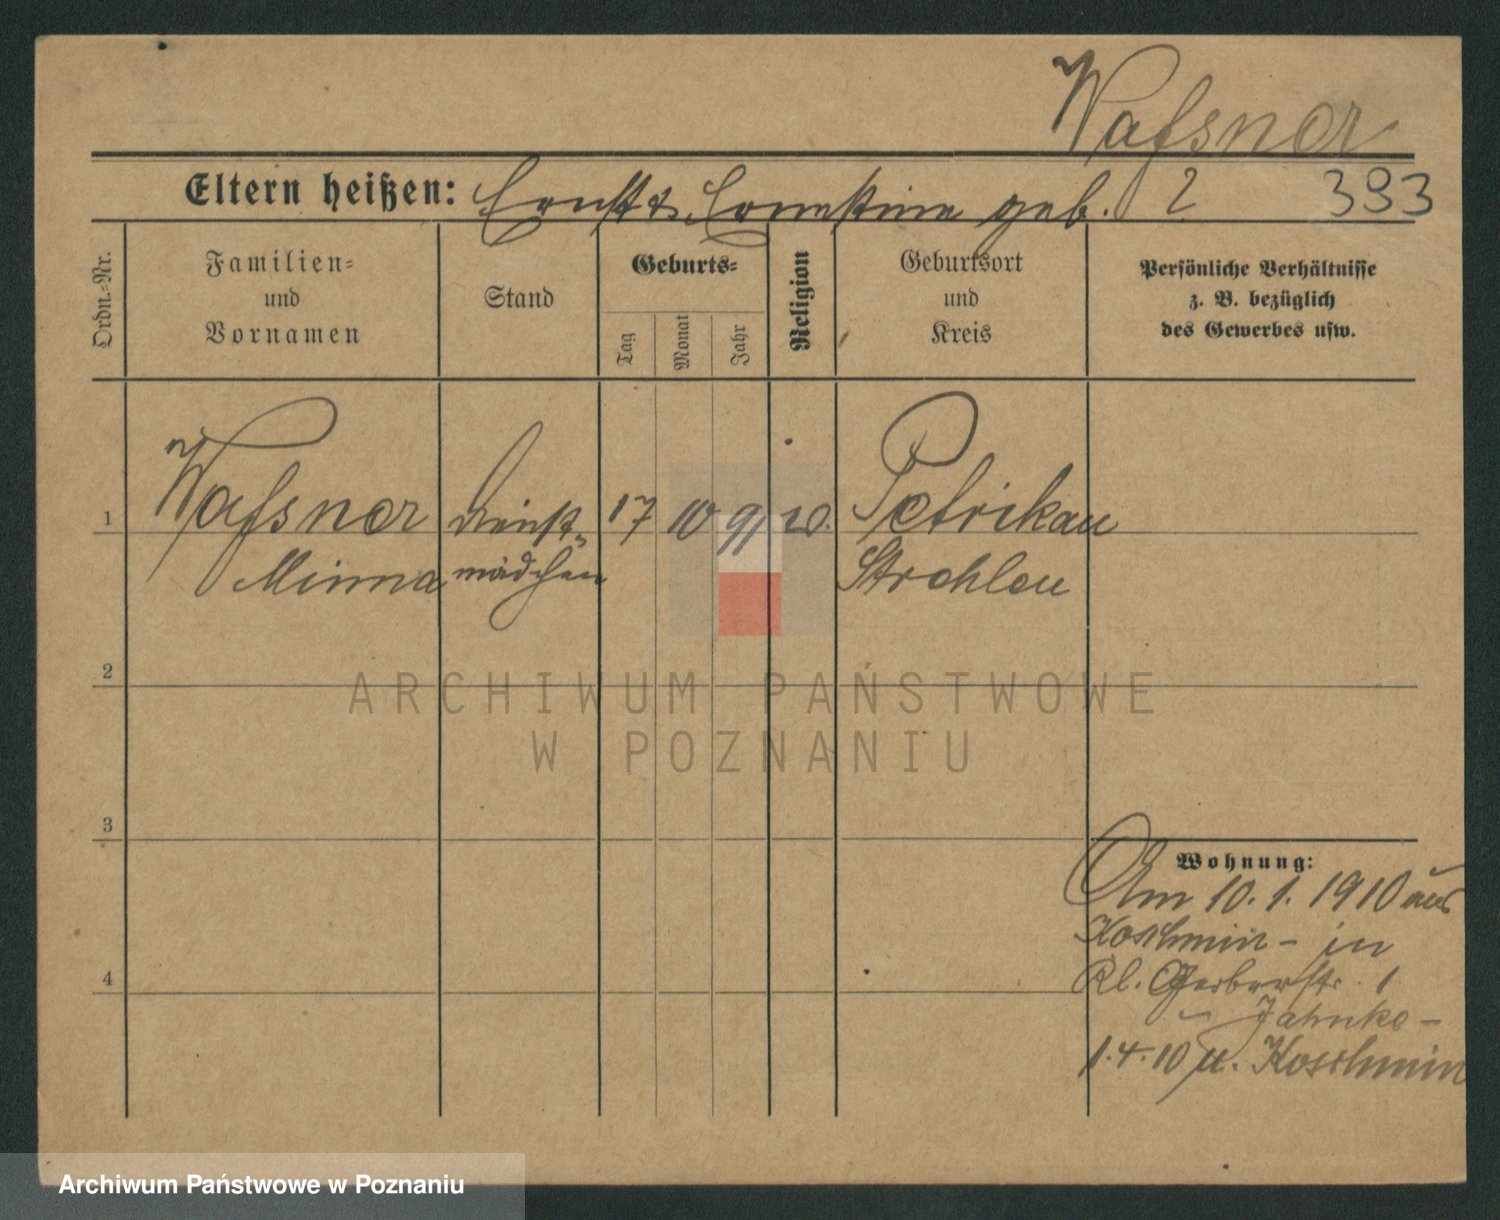 Wassner
Eltern heißen: Ernst u. Ernestine geb. ? 393
Ordn.-Nr.
Familien-
und
Vornamen
Stand
Geburts-
Tag
Monat
Jahr
Religion
Geburtsort
und
Kreis
Persönliche Verhältnisse
z. B. bezüglich
des Gewerbes usw.
1 Wassner Dienst- 17 10 91 Petrikau
Minna mädchen Strehlen
2
ARCHIWUM PAŃSTWOWE
W POZNANIU
3
Wohnung:
Am 10. 1. 1910 aus
Koschmin - in
Kl. Gerberstr. 1
Jahnke -
4
1.4.10 u. Koschmin
Archiwum Państwowe w Poznaniu